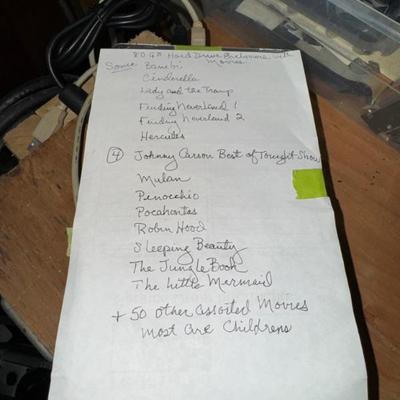 80 GB Hard Drive Enclosure with
Movies.
Some Bambi
Cinderella
Lady and the Tramp
Finding Neverland 1
Finding Neverland 2
Hercules
④ Johnny Carson Best of Tonight Show
Mulan
Penocchio
Pocahontas
Robin Hood
Sleeping Beauty
The Jungle Book
The Little Mermaid
+ 50 other assorted Movies
most are Childrens